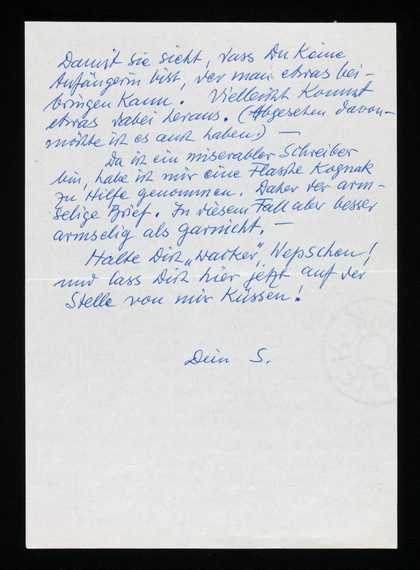 Damit sie sieht, dass Du keine
Anfängerin bist, der man etwas bei-
bringen kann. Vielleicht kommt
etwas dabei heraus. (Abgesehen davon –
möchte ich es auch haben) —
Da ich ein miserabler Schreiber
bin, habe ich mir eine Flasche Kognak
zu Hilfe genommen. Daher der arm-
selige Brief. In diesem Fall aber besser
armselig als garnicht. —
Halte Dich „wacker", Wepschen!
und lass Dich hier jetzt auf der
Stelle von mir Küssen!
Dein S.